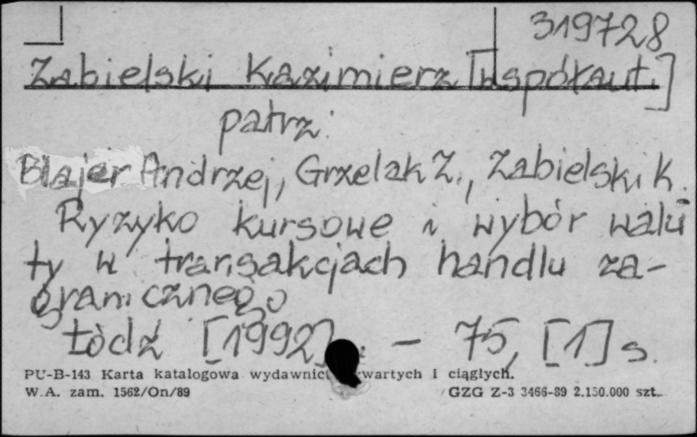 319728
Zabielski Kazimierz [współaut.]
patrz:
Blajer Andrzej, Grzelak Z., Zabielski K.
Ryzyko kursowe i wybór walu
ty w transakcjach handlu za-
granicznego
Łódź [1992]. - 75, [1] s.
PU-B-143 Karta katalogowa wydawnict wartych i ciągłych.
W.A. zam. 1562/On/89 GZG Z-3 3466-89 2.150.000 szt.